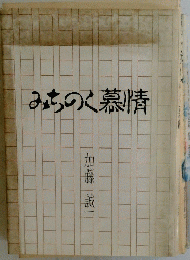 みちのく慕情
加藤誠一